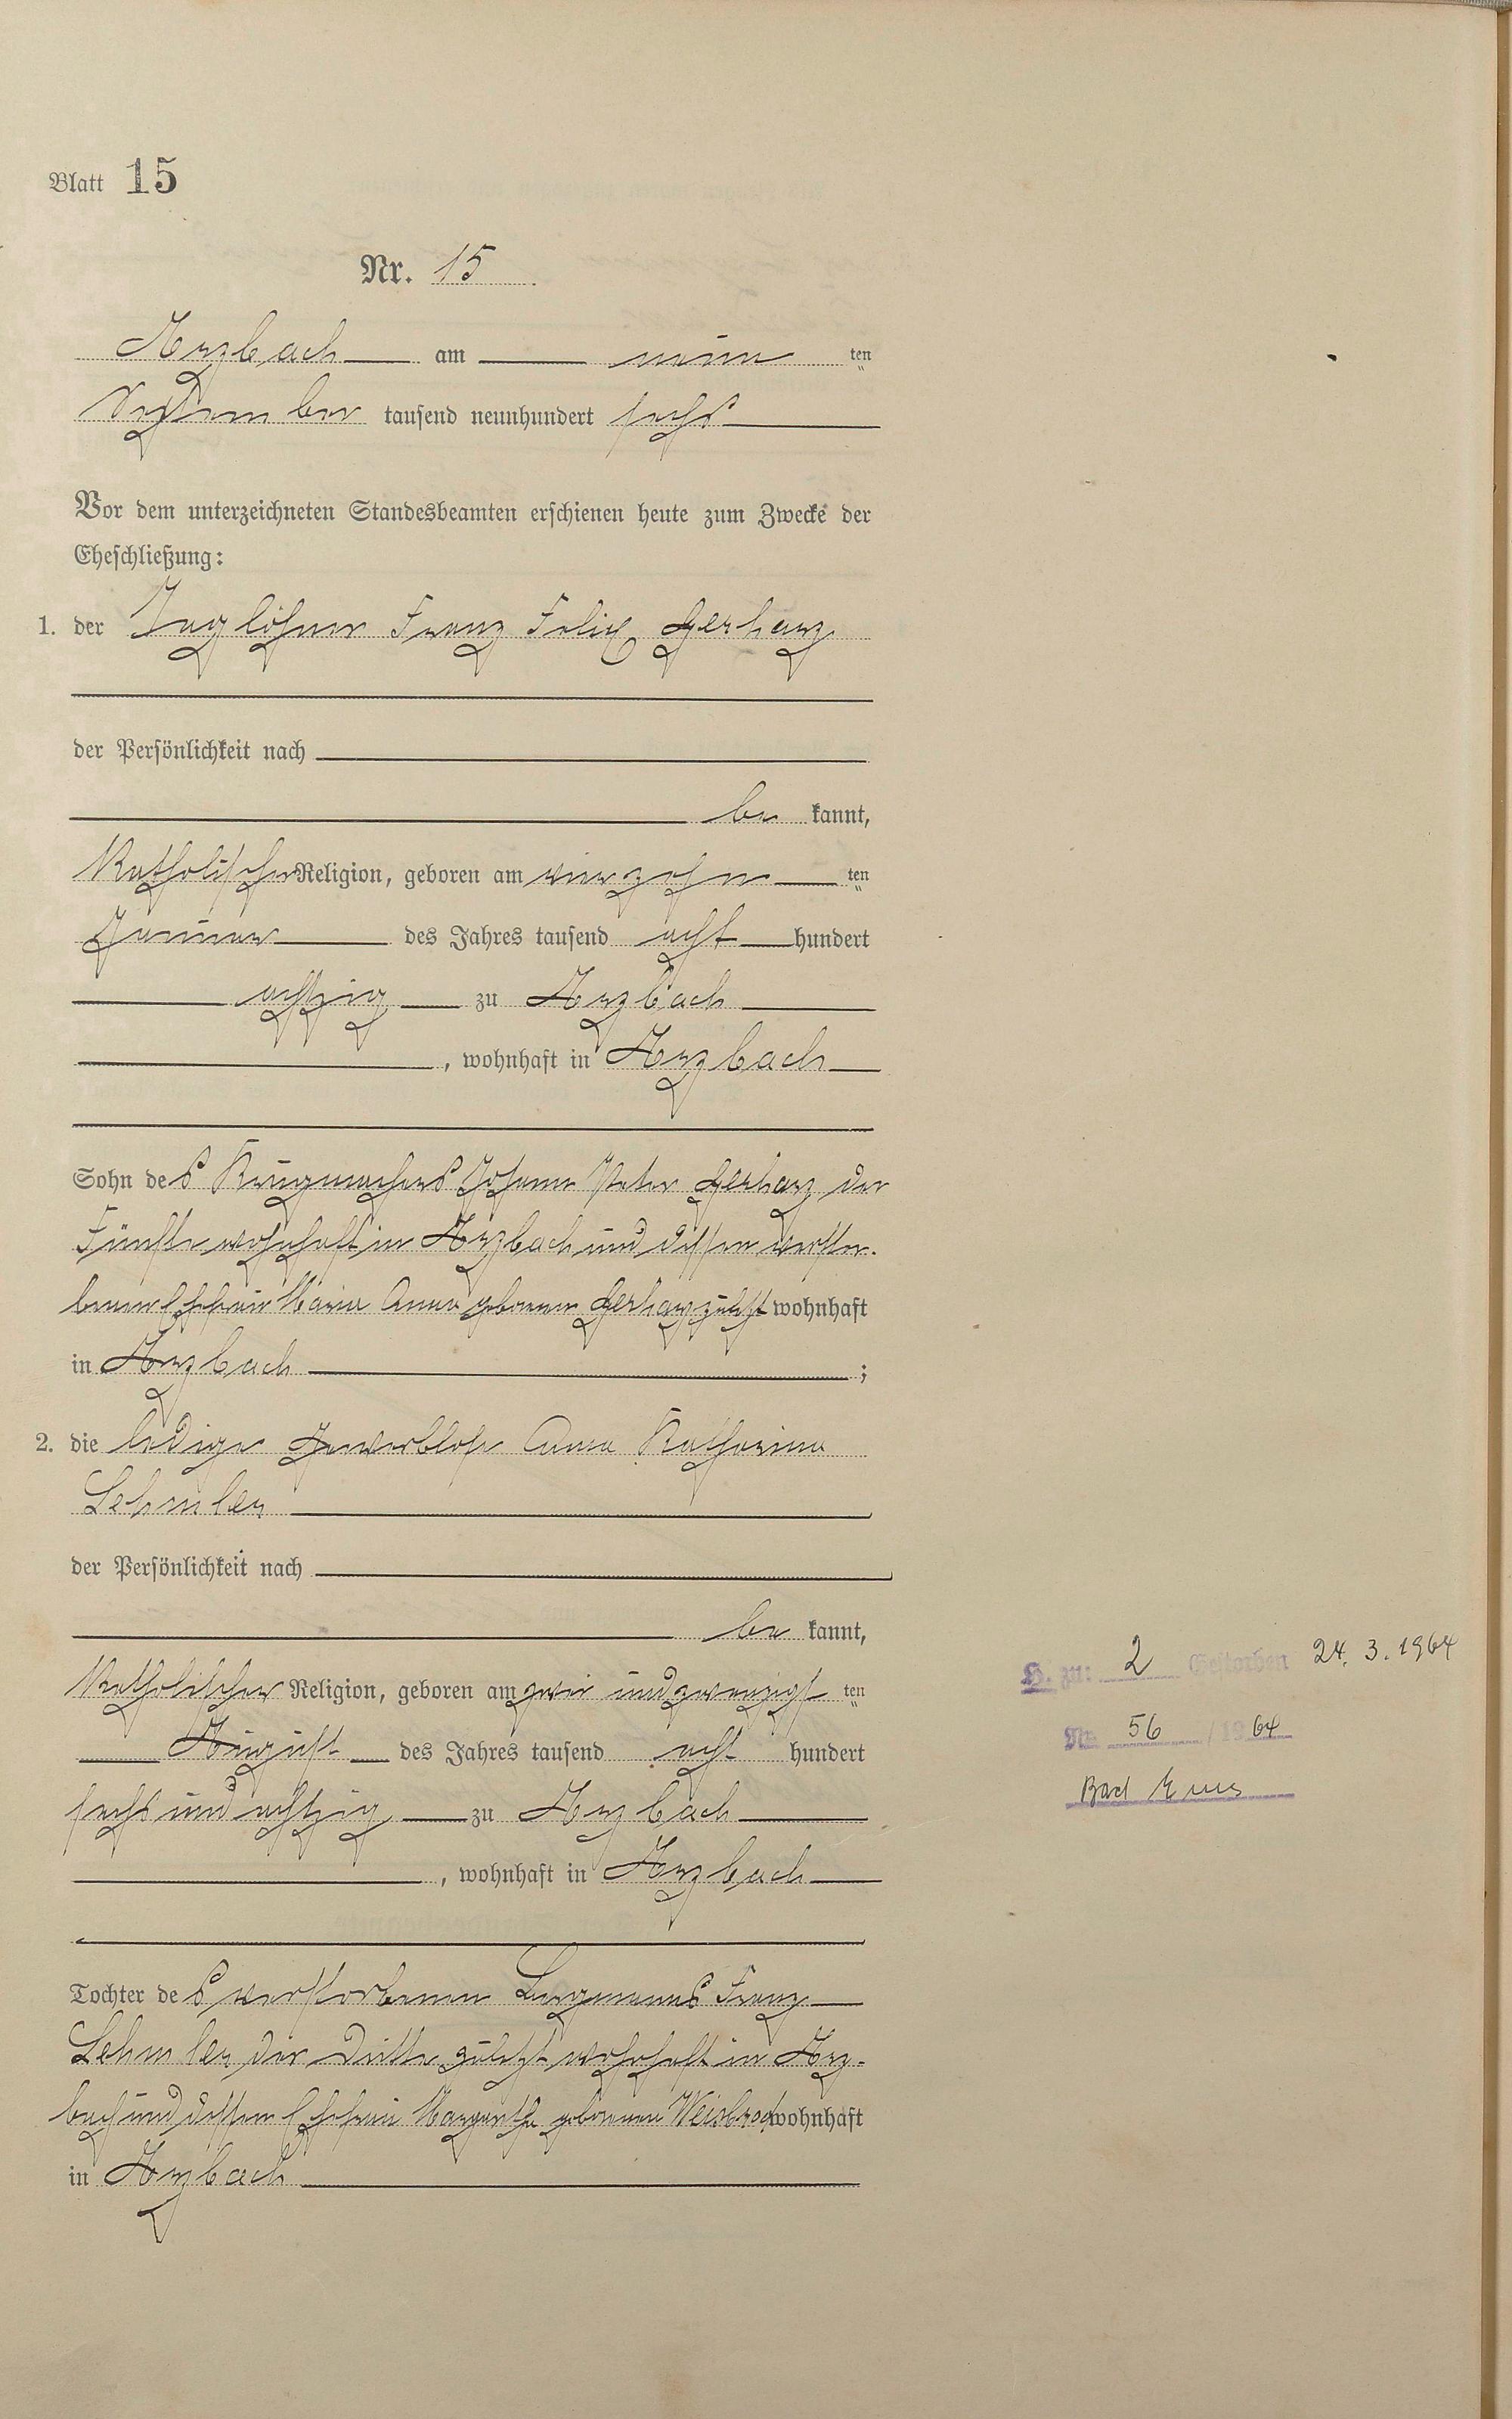 Blatt 15
Nr. 15
Arzbach am neun ten
September tausend neunhundert sechs
Vor dem unterzeichneten Standesbeamten erschienen heute zum Zwecke der
Eheschließung:
1. der Taglöhner Franz Felix Gerharz
der Persönlichkeit nach
be kannt,
Katholischer Religion, geboren am vierzehn ten
Januar des Jahres tausend acht hundert
achtzig zu Arzbach
, wohnhaft in Arzbach
Sohn des Krugmachers Johann Peter Gerharz der
Fünfte wohnhaft in Arzbach und dessen verstor-
benen Ehefrau Maria Anna geborenen Gerharz zuletzt wohnhaft
in Arzbach ;
2. die ledige Gewerblose Anna Katharina
Lehmler
der Persönlichkeit nach
be kannt,
Katholischer Religion, geboren am zwei und zwanzigst ten
August des Jahres tausend acht hundert
sechs und achtzig zu Arzbach
, wohnhaft in Arzbach
Tochter des verstorbenen Bergmanns Franz
Lehmler der Dritte zuletzt wohnhaft in Arz-
bach und dessen Ehefrau Margaretha geborenen Weisbrod wohnhaft
in Arzbach
H. zu: 2 Gestorben 24.3.1964
Nr. 56 / 1964
Bad Ems